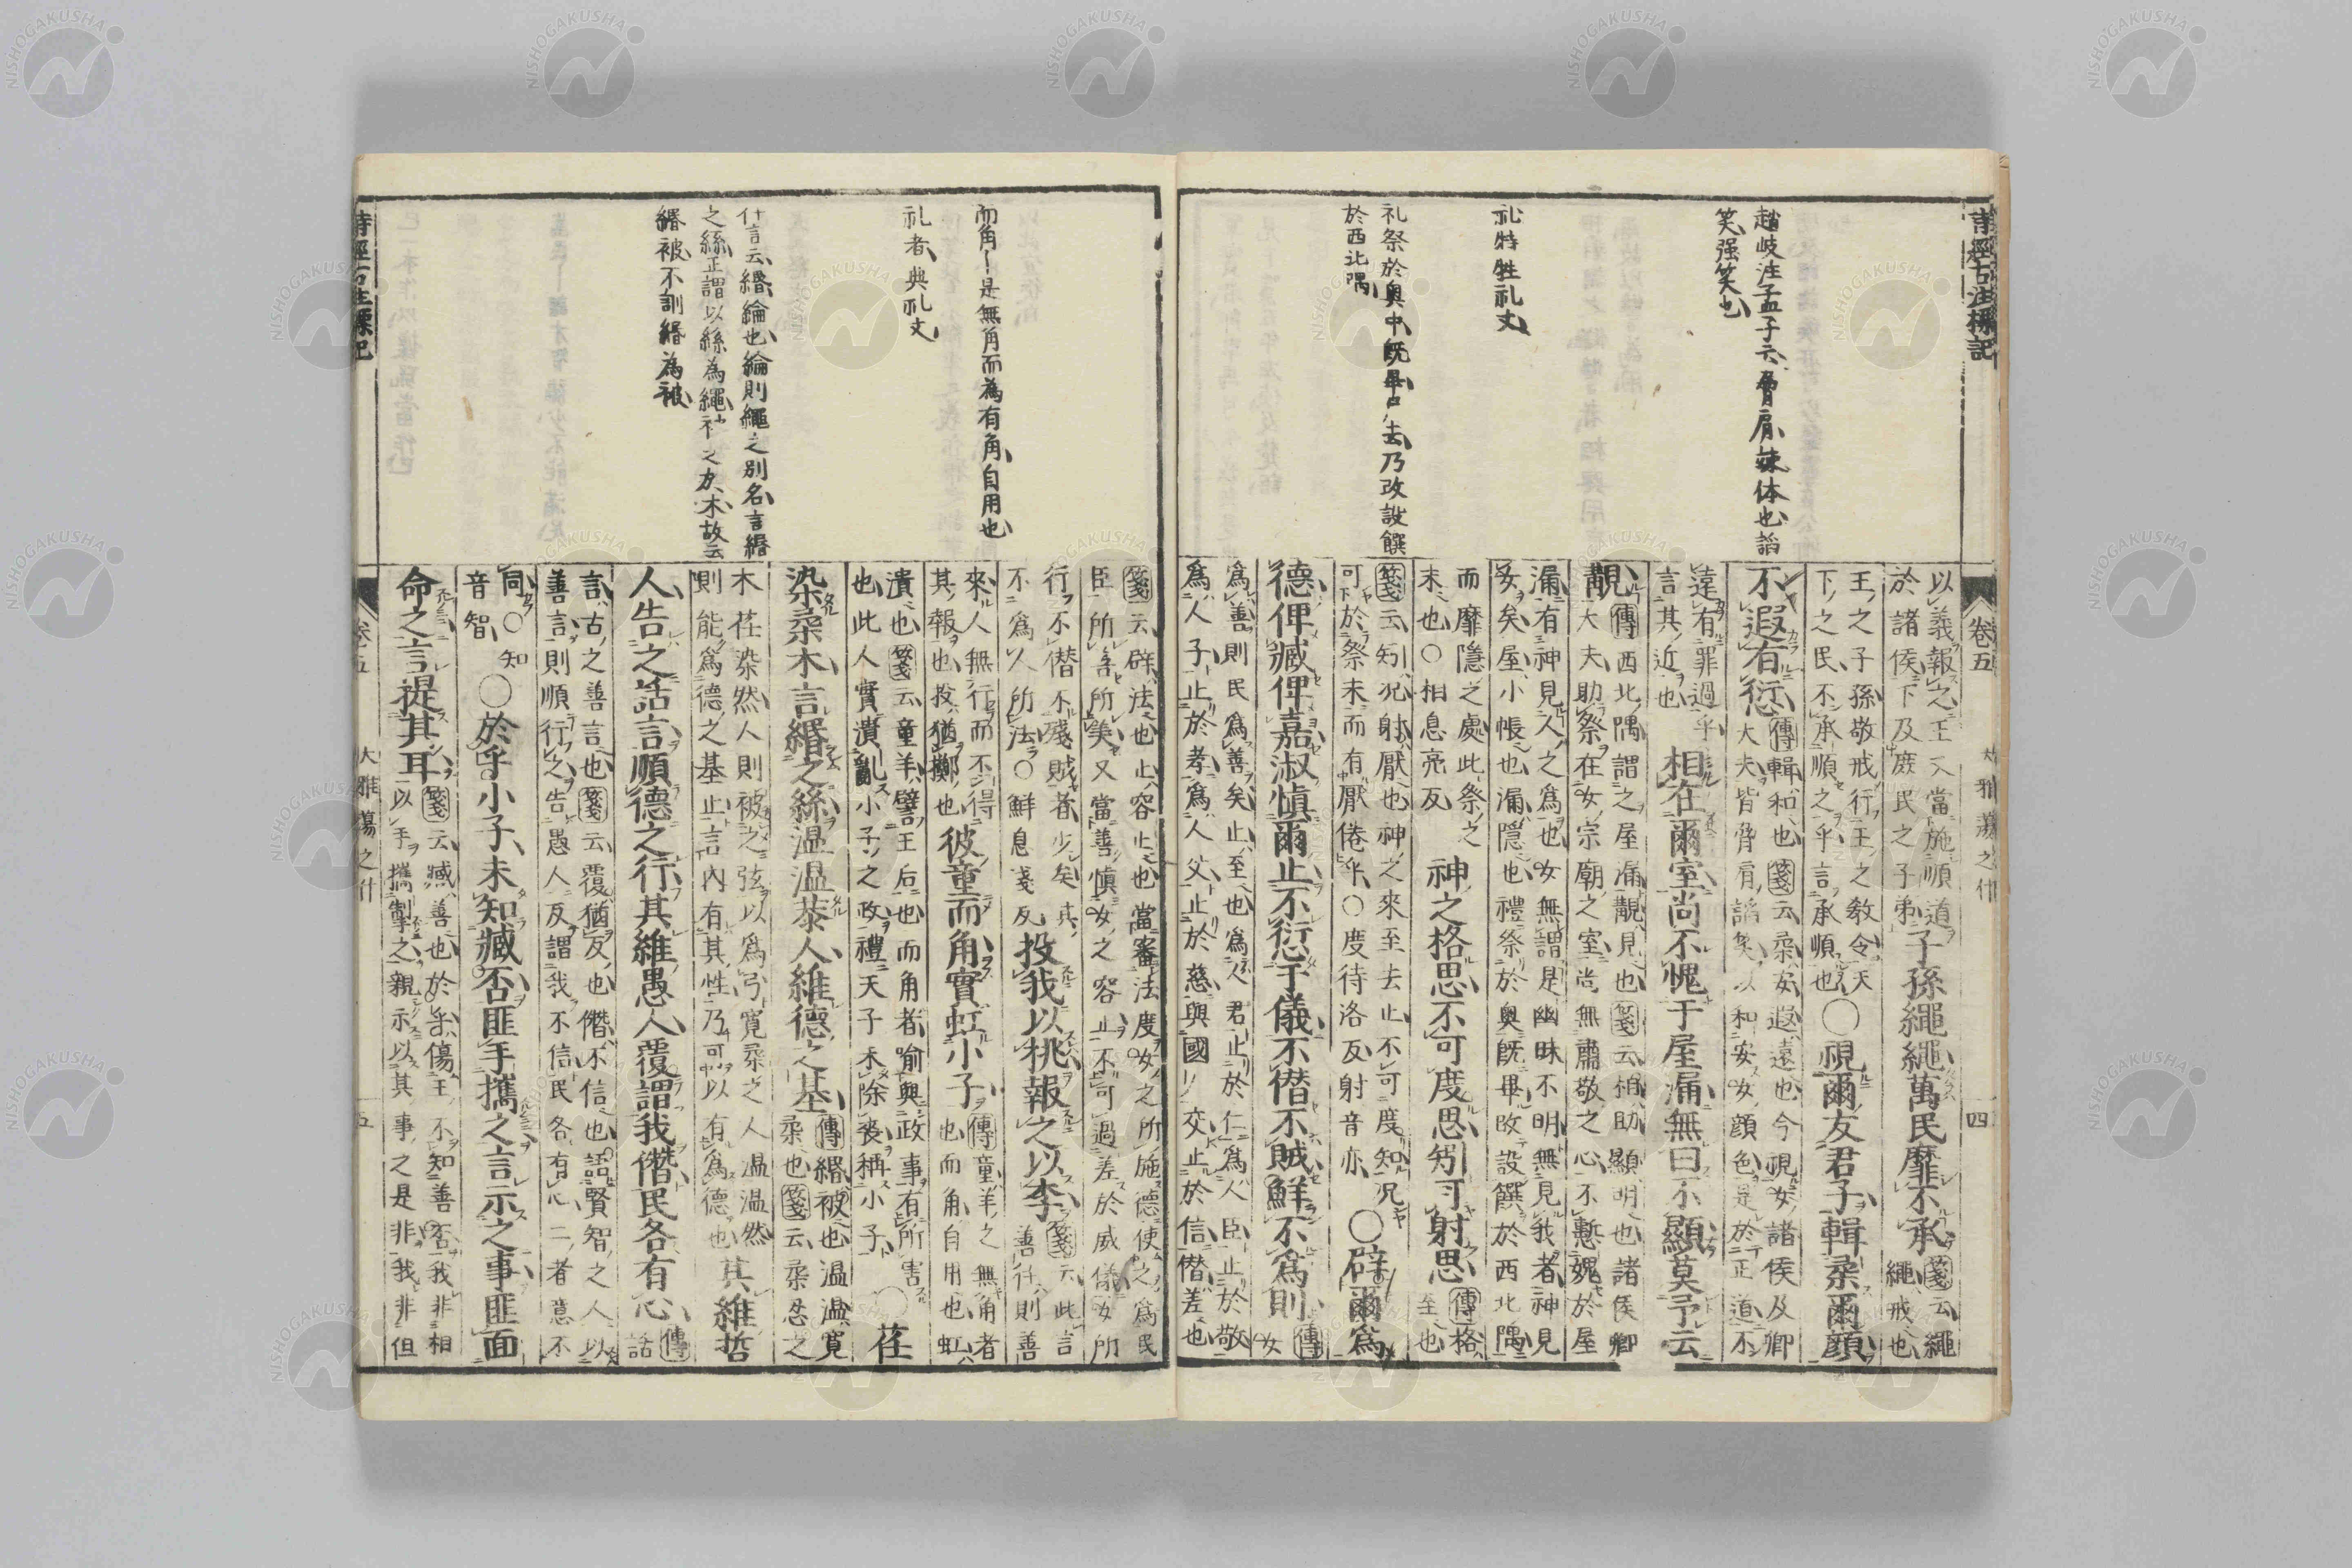 詩經古注標記
卷五
大雅蕩之什
四
趙岐注孟子云脅肩竦体也謟
笑强笑也
礼特牲礼文
礼祭於奥中既畢尸去乃改設饌
於西北隅
以義報之王又當施順道
於諸侯下及庶民之子弟
子孫繩繩萬民靡不承
箋云繩
繩戒也
王之子孫敬戒行王之教令天
下之民不承順之乎言承順也
○視爾友君子輯柔爾顔
不遐有愆
傳輯和也箋云柔安遐遠也今視女諸侯及卿
大夫皆脅肩謟笑以和安女顔色是於正道不
遠有罪過乎
言其近也
相在爾室尚不愧于屋漏無曰不顯莫予云
覯
傳西北隅謂之屋漏覯見也箋云相助顯明也諸侯卿
大夫助祭在女宗廟之室尚無肅敬之心不慙媿於屋
漏有神見人之爲也女無謂是幽昧不明無見我者神見
女矣屋小帳也漏隱也禮祭於奥既畢改設饌於西北隅
而厞隱之處此祭之
末也○相息亮反
神之格思不可度思矧可射思
傳格
至也
箋云矧况射厭也神之來至去止不可度知况
可於祭末而有厭倦乎○度待洛反射音亦
○辟爾爲
德俾臧俾嘉淑愼爾止不愆于儀不僭不賊鮮不爲則
傳
女
爲善則民爲善矣止至也爲人君止於仁爲人臣止於敬
爲人子止於孝爲人父止於慈與國人交止於信僭差也
箋云辟法也止容止也當審法度女之所施德使之爲民
臣所善所美又當善愼女之容止不可過差於威儀女所
行不僭不殘賊者少矣其
不爲人所法○鮮息淺反
投我以桃報之以李
箋云此言
善往則善
來人無行而不得
其報也投猶擲也
彼童而角實虹小子
傳童羊之無角者
也而角自用也虹
潰也箋云童羊譬王后也而角者喻與政事有所害
也此人實潰亂小子之政禮天子未除喪稱小子
○荏
染柔木言緡之絲溫溫恭人維德之基
傳緡被也溫溫寬
柔也箋云柔忍之
木荏染然人則被之弦以爲弓寬柔之人溫溫然
則能爲德之基止言内有其性乃可以有爲德也
其維哲
人告之話言順德之行其維愚人覆謂我僭民各有心
傳
話
言古之善言也箋云覆猶反也僭不信也語賢智之人以
善言則順行之告愚人反謂我不信民各有心二者意不
同○知
音智
○於乎小子未知臧否匪手攜之言示之事匪面
命之言提其耳
箋云臧善也於乎傷王不知善否我非相
以手攜掣之親示以其事之是非我非但
而角〡是無角而為有角自用也
礼者典礼文
什言云緡綸也綸則繩之別名言緡
之絲正謂以絲為繩
緡被不訓緡為被
詩經古注標記
卷五
大雅蕩之什
五